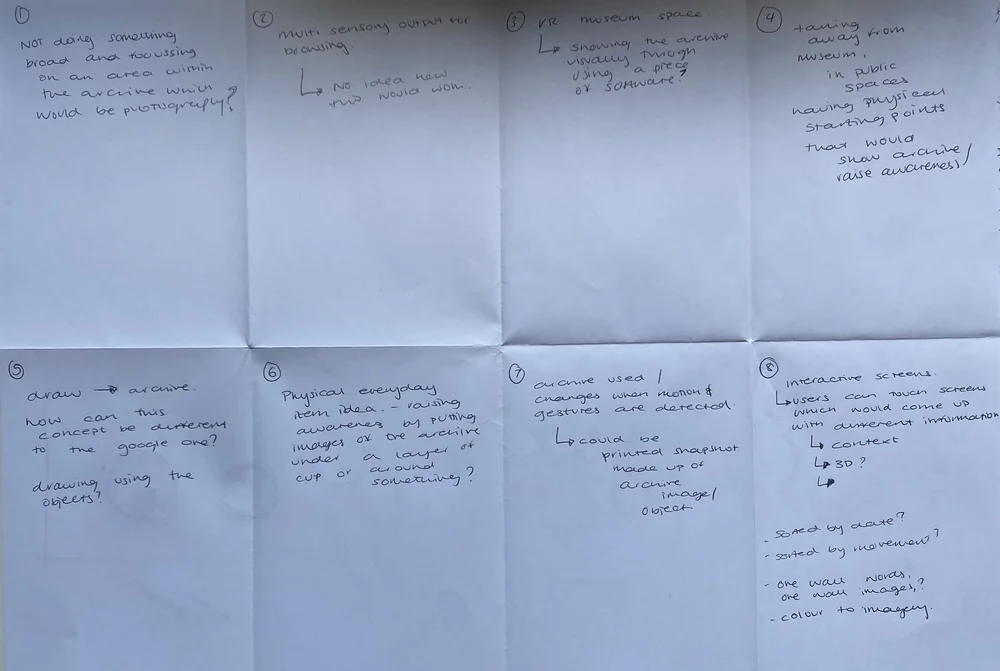 ①
NOT doing something
broad and focussing
on an area within
the archive which
would be photography?
②
multi sensory output for
browsing.
↳ NO idea how
this would work.
③ VR museum space.
↳ showing the archive
visually through
using a piece
of software?
④ taking
away from
museum,
in public
spaces
having physical
starting points
that would
show archive/
raise awareness/
⑤
draw → archive.
how can this
concept be different
to the google one?
drawing using the
objects?
⑥ Physical everyday
item idea. - raising
awareness by putting
images of the archive
under a layer of
cup or around
something?
⑦ archive used /
changes when motion &
gestures are detected.
↳ could be
printed snapshot
made up of
archive
image/
object
⑧ interactive screens.
↳ users can touch screens
which would come up
with different information
↳ context
↳ 3D?
↳
- sorted by date?
- sorted by movement?
- one wall words,
one wall images,?
- colour to imagery.